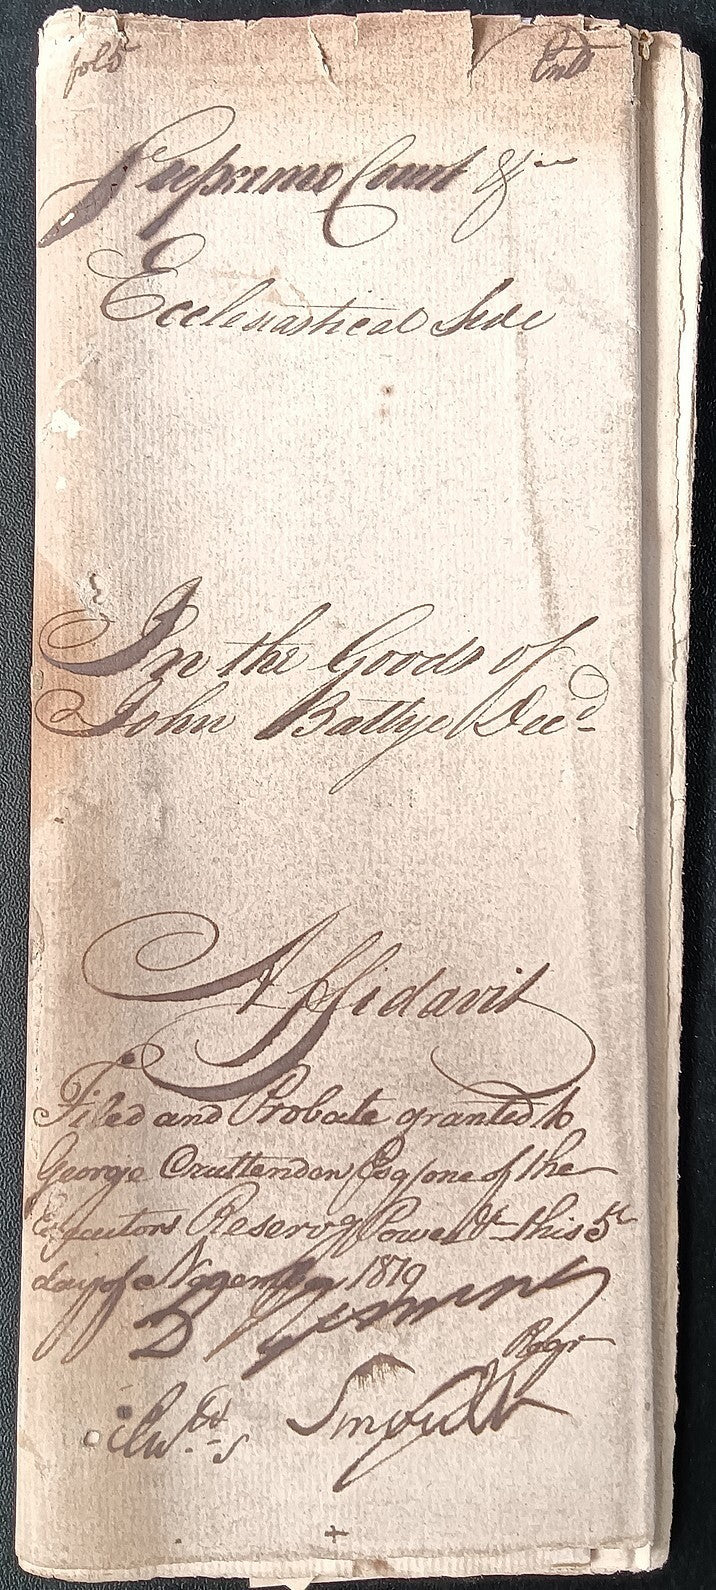 fol 5 Entd
Supreme Court &c
Ecclesiastical Side
In the Goods of
John Battye Decd
Affidavit
Filed and Probate granted to
George Cruttenden Esqr one of the
Executors Reservg Power &c this 5th
day of November 1819
D
Regr
Smoult